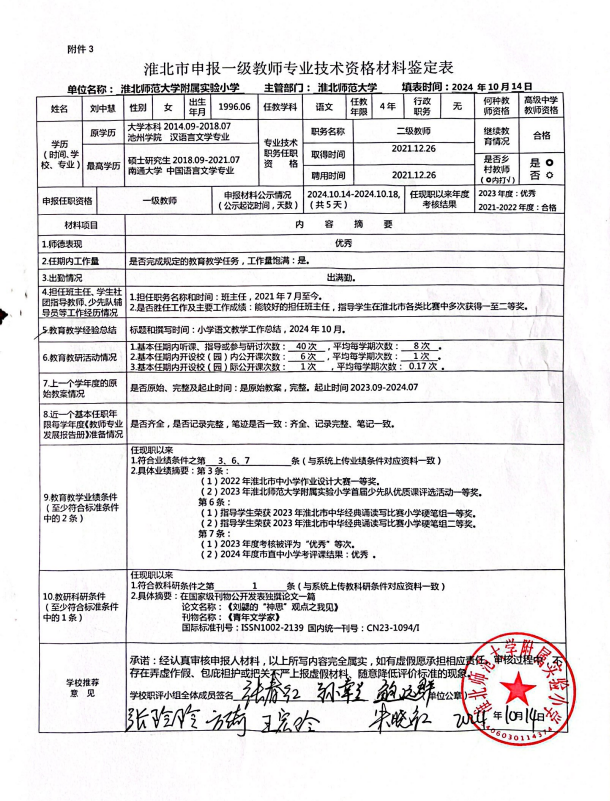 附件 3
淮北市申报一级教师专业技术资格材料鉴定表
单位名称：淮北师范大学附属实验小学 主管部门：淮北师范大学 填表时间：2024 年 10 月 14 日
姓名 刘中慧 性别 女 出生年月 1996.06 任教学科 语文 任教年限 4 年 行政职务 无 何种教师资格 高级中学教师资格
学历（时间、学校、专业） 原学历 大学本科 2014.09-2018.07
池州学院 汉语言文学专业
最高学历 硕士研究生 2018.09-2021.07
南通大学 中国语言文学专业
专业技术职务任职资格 职务名称 二级教师
取得时间 2021.12.26
聘用时间 2021.12.26
继续教育情况 合格
是否乡村教师（O内打√） 是
否
申报任职资格 一级教师 申报材料公示情况（公示起讫时间，天数） 2024.10.14-2024.10.18,（共 5 天） 任现职以来年度考核结果 2023 年度：优秀
2021-2022 年度：合格
材料项目 内 容 摘 要
1.师德表现 优秀
2.任期内工作量 是否完成规定的教育教学任务，工作量饱满：是。
3.出勤情况 出满勤。
4.担任班主任、学生社团指导教师、少先队辅导员等工作经历情况
1.担任职务名称和时间：班主任，2021 年 7 月至今。
2.是否胜任工作及主要工作成绩：能较好的担任班主任，指导学生在淮北市各类比赛中多次获得一至二等奖。
5.教育教学经验总结 标题和撰写时间：小学语文教学工作总结，2024 年 10 月。
6.教育教研活动情况
1.基本任期内听课、指导或参与研讨次数： 40 次 ，平均每学期次数： 8 次 。
2.基本任期内开设校（园）内公开课次数： 6 次 ，平均每学期次数： 1 次 。
3.基本任期内开设校（园）际公开课次数： 1 次 ，平均每学期次数： 0.17 次 。
7.上一个学年度的原始教案情况 是否原始、完整及起止时间：是原始教案，完整。起止时间 2023.09-2024.07
8.近一个基本任职年限每学年度《教师专业发展报告册》准备情况 是否齐全，是否记录完整，笔迹是否一致：齐全、记录完整、笔记一致。
9.教育教学业绩条件（至少符合标准条件中的 2 条）
任现职以来
1.符合业绩条件之第 3、6、7 条（与系统上传业绩条件对应资料一致）
2.具体业绩摘要：第 3 条：
（1）2022 年淮北市中小学作业设计大赛一等奖。
（2）2023 年淮北师范大学附属实验小学首届少先队优质课评选活动一等奖。
第 6 条：
（1）指导学生荣获 2023 年淮北市中华经典诵读写比赛小学硬笔组一等奖。
（2）指导学生荣获 2023 年淮北市中华经典诵读写比赛小学硬笔组二等奖。
第 7 条：
（1）2023 年度考核被评为“优秀”等次。
（2）2024 年度市直中小学考评课结果：优秀 。
10.教研科研条件（至少符合标准条件中的 1 条）
任现职以来
1.符合教科研条件之第 1 条（与系统上传教科研条件对应资料一致）
2.具体摘要：在国家级刊物公开发表独撰论文一篇
论文名称：《刘勰的“神思”观点之我见》
刊物名称：《青年文学家》
国际标准刊号：ISSN1002-2139 国内统一刊号：CN23-1094/I
学校推荐意 见
承诺：经认真审核申报人材料，以上所写内容完全属实，如有虚假愿承担相应责任。审核过程中，不存在弄虚作假、包庇袒护或把关不严上报虚假材料、随意降低评价标准的现象。
学校职评小组全体成员签名 张春红 单位公章
张玲玲 方绮 王宏玲 朱晓红 2024 年 10 月 14 日
淮北师范大学附属实验小学